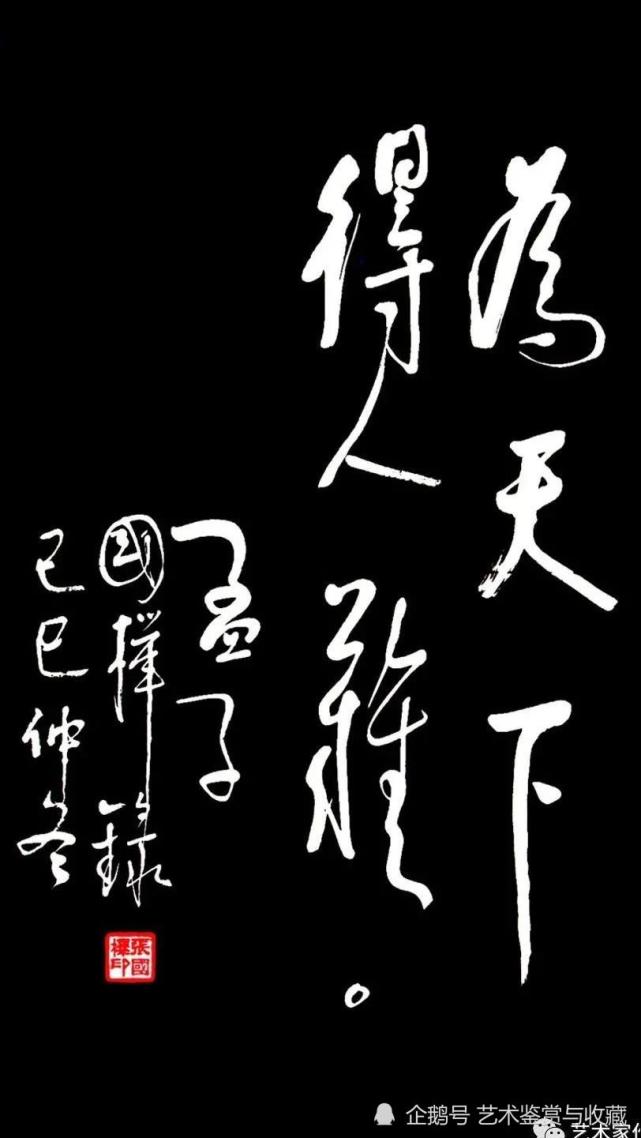 為天下
得人難。
孟子
國樺錄
己巳仲冬
張國樺印
企鹅号 艺术鉴赏与收藏
艺术家